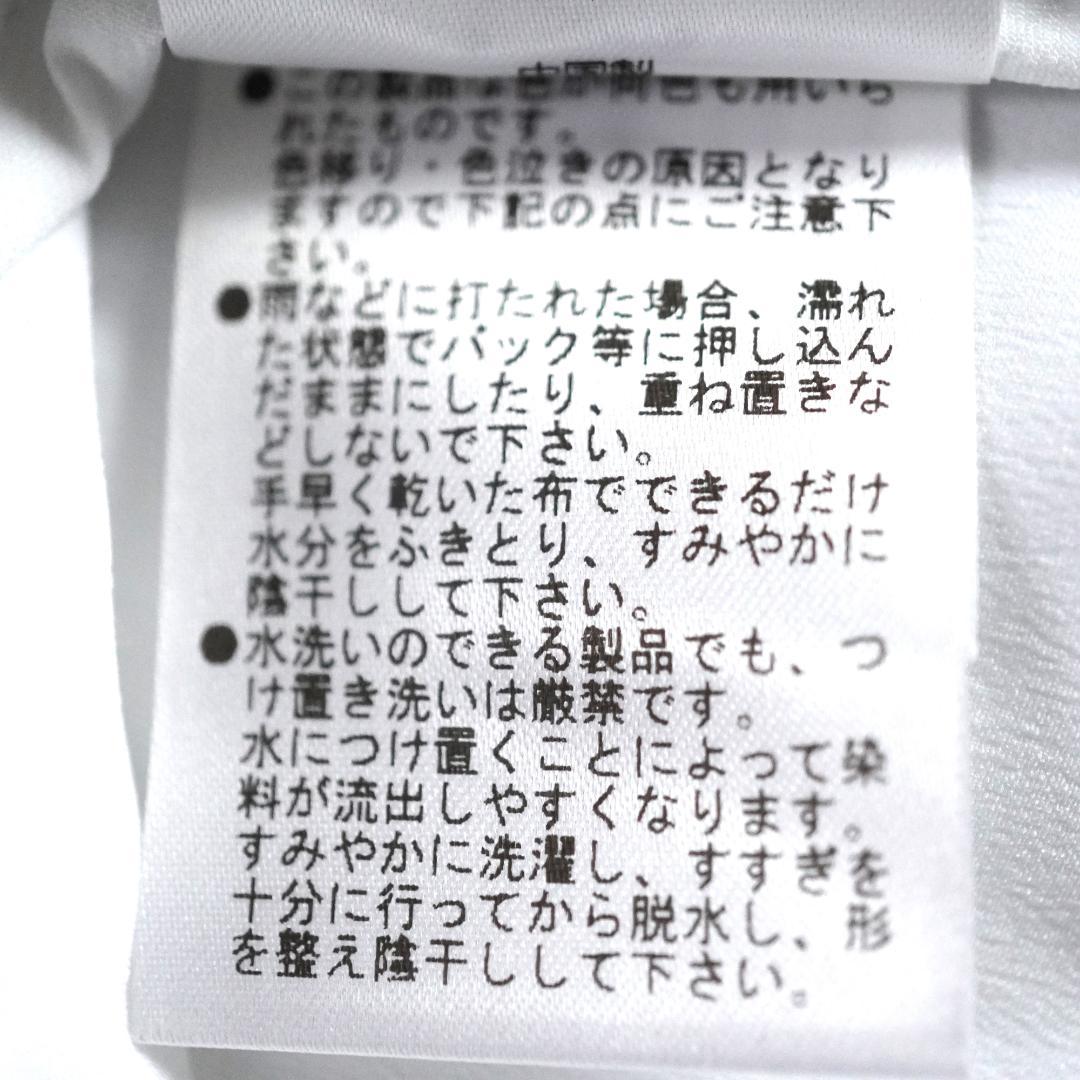 中国製
●この製品は色が何色も用いら
れたものです。
色移り・色泣きの原因となり
ますので下記の点にご注意下
さい。
●雨などに打たれた場合、濡れ
た状態でバック等に押し込ん
だままにしたり、重ね置きな
どしないで下さい。
手早く乾いた布でできるだけ
水分をふきとり、すみやかに
陰干しして下さい。
●水洗いのできる製品でも、つ
け置き洗いは厳禁です。
水につけ置くことによって染
料が流出しやすくなります。
すみやかに洗濯し、すすぎを
十分に行ってから脱水し、形
を整え陰干しして下さい。